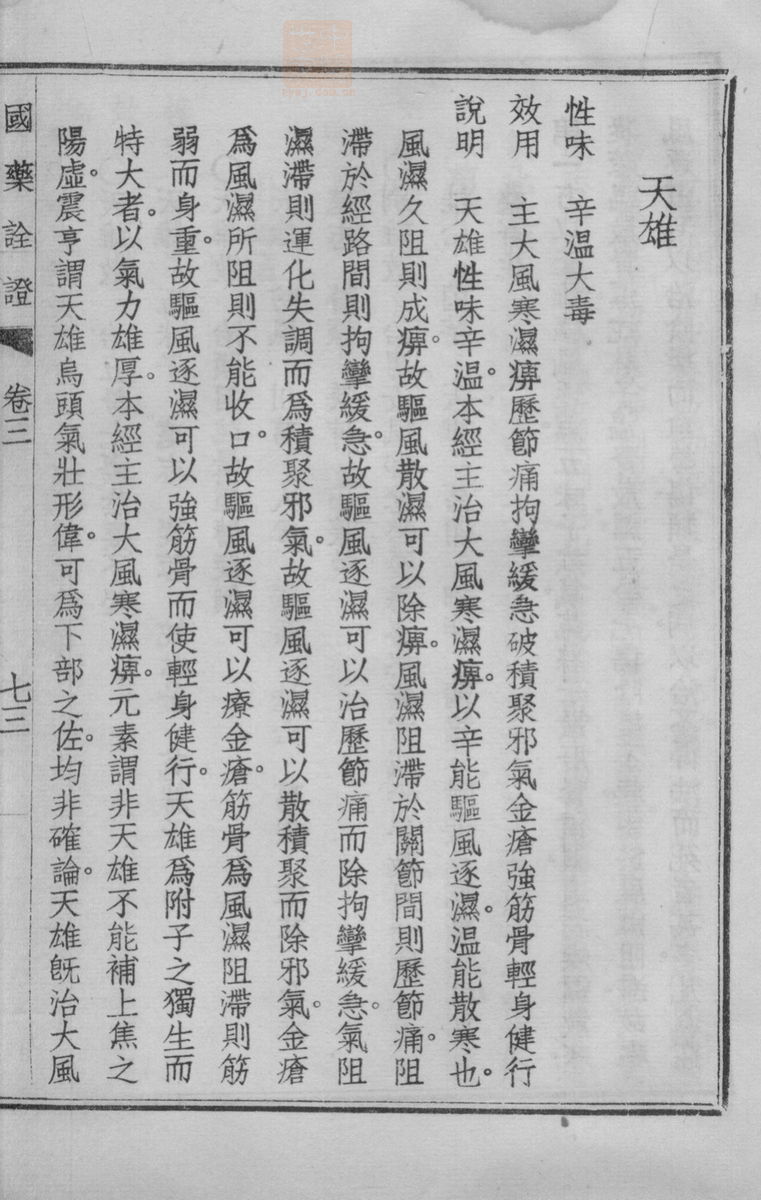 天雄
性味　辛温大毒
效用　主大風寒濕痹歷節痛拘攣緩急破積聚邪氣金瘡強筋骨輕身健行
說明　天雄性味辛温。本經主治大風寒濕痹。以辛能驅風逐濕。温能散寒也。
風濕久阻則成痹。故驅風散濕可以除痹。風濕阻滯於關節間則歷節痛。阻
滯於經路間則拘攣緩急。故驅風逐濕可以治歷節痛而除拘攣緩急。氣阻
濕滯則運化失調而爲積聚邪氣。故驅風逐濕可以散積聚而除邪氣。金瘡
爲風濕所阻則不能收口。故驅風逐濕可以療金瘡。筋骨爲風濕阻滯則筋
弱而身重。故驅風逐濕可以強筋骨而使輕身健行。天雄爲附子之獨生而
特大者。以氣力雄厚。本經主治大風寒濕痹。元素謂非天雄不能補上焦之
陽虛。震亨謂天雄烏頭氣壯形偉。可爲下部之佐。均非確論。天雄旣治大風
國藥詮證　卷三　七三